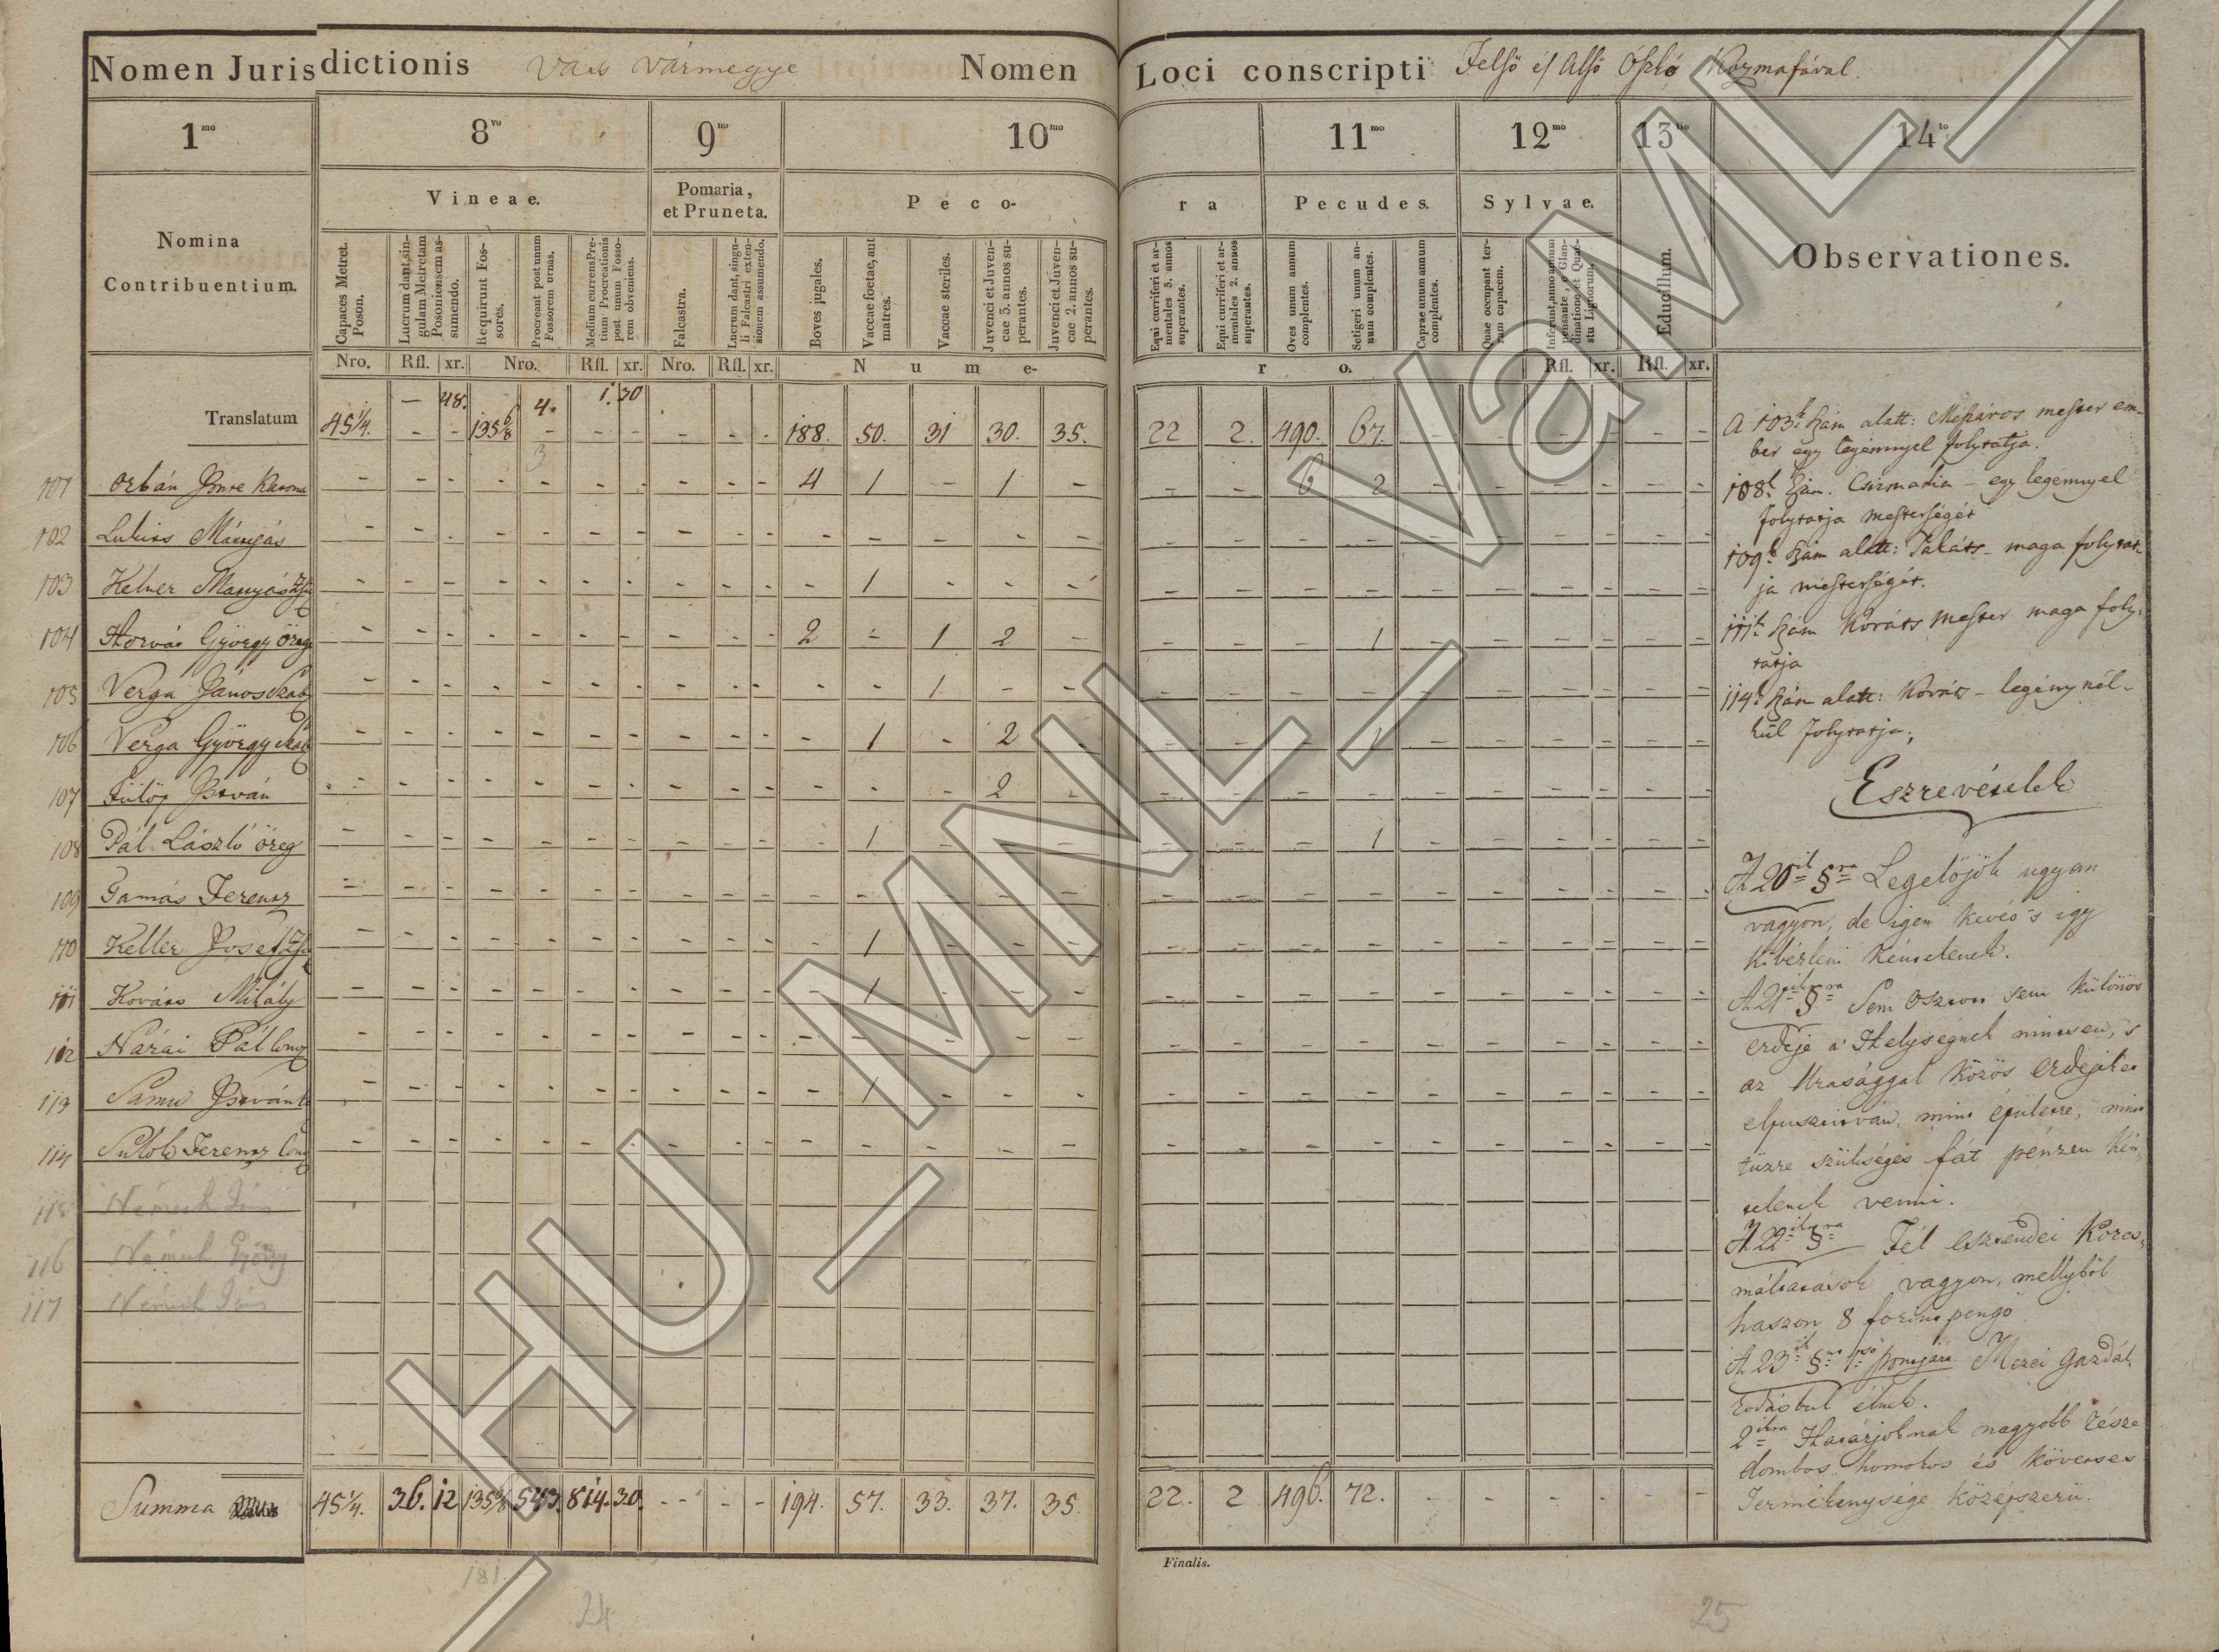 Nomen Jurisdictionis Vass vármegye Nomen Loci conscripti Felső és Alsó Őszkó Kozmafával.
1mo 8vo 9no 10mo 11mo 12mo 13tio 14to
Nomina
Contribuentium.
Vineae.
Pomaria,
et Pruneta.
Peco-
ra
Pecudes.
Sylvae.
Educillum.
Observationes.
Capaces Metret.
Poson.
Lucrum dant, sin-
gulam Metretam
Posoniensem as-
sumendo.
Requirunt Fos-
sores.
Procreant post unum
Fossorem urnas.
Medium currens Pre-
tium Procreationis
post unum Fosso-
rem obveniens.
Falcastra.
Lucrum dant, singu-
li Falcastri exten-
sionem assumendo.
Boves jugales.
Vaccae foetae, aut
matres.
Vaccae steriles.
Juvenci et Juven-
cae 3. annos su-
perantes.
Juvenci et Juven-
cae 2. annos su-
perantes.
Equi curriferi et ar-
mentales 3. annos
superantes.
Equi curriferi et ar-
mentales 2. annos
superantes.
Oves unum annum
complentes.
Setigeri unum an-
num complentes.
Caprae annum annum
complentes.
Quae occupant ter-
ram capacem.
Nro. Rfl. xr. Nro. Rfl. xr. Nro. Rfl. xr. Nume- ro. Rfl. xr. Rfl. xr.
— 48. 4. 1. 30
Translatum 45 1/4. - - 135 6/8 - - - - - - 188. 50. 31 30. 35. 22 2. 490. 67. - - - - - -
3
101 Orbán Imre Katona - - - - - - - - - - 4 1 - 1 - - - 6 2 - - - - - -
102 Lukits Mátyás
103 Kelner Mátyás Zs 1
104 Horvát György Öreg 2 - 1 2 - 1
105 Verga János Szab 1
106 Verga György 1 - 2 - 1
107 Fülöp István 2
108 Pál László öreg 1 1
109 Tamás Ferencz
110 Keller Josef Zs 1
111 Kováts Mihály 1
112 Nárai Pál
113 Samu István 1
114 Ferencz
115 Németh János
116 Németh György
117 Németh János
Summa 45 1/4. 36. 12 135 6/8 543. 814. 30. - - - 194. 57. 33. 37. 35. 22. 2 496. 72. - - - - - -
A 103k szám alatt: Mészáros mester em-
ber egy legénnyel folytatja.
108k szám. Csizmadia - egy legénnyel
folytatja mesterségét
109k szám alatt: Takáts - maga folytat-
ja mesterségét.
111k szám Kováts mester maga foly-
tatja
114k szám alatt: Kováts - legény nél-
kül folytatja;
Eszrevételek
A 20ik §ra Legelöjök ugyan
vagyon, de igen kevés 's igy
kibérleni kéntelenek.
A 21ik §ra Sem Osztott sem különös
erdeje a' Helységnek nintsen, 's
az Urasággal közös erdejek
elpusztúlván, mint épületre, mint
tüzre szükséges fát pénzen kén-
telenek venni.
A 22ik §ra Fél esztendei Korts-
máltatások vagyon, mellyböl
haszon 8 forint pengö
A 23ik §na 1sö pontjára Mezei gazdál-
kodásbul élnek.
2ikra Határjoknak nagyobb része
dombos homokos és köveses
Termékenysége középszerü.
Finalis.
181
24
25
HU_MNL_VaML_